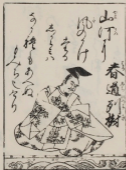 春道列樹
山川に
風のかけ
たる
しからみは
なかれもあへぬ
もみちなりけり